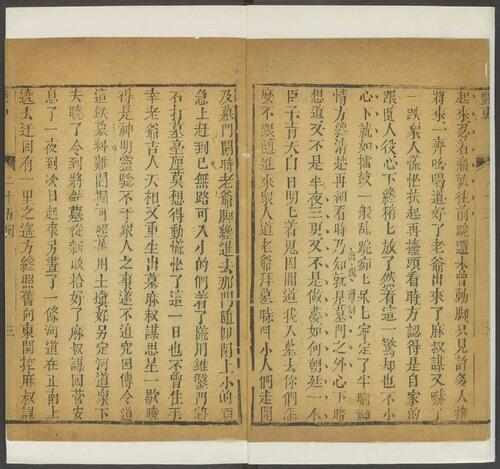 起來忍着痛就往前跑還未曾動脚只見許多人擁
將來一齊吆喝道好了老爺出來了麻叔謀又嚇了
一跌衆人慌忙扶起再擡頭看時方認得是自家的
跟隨人役心下纔稍上放了然着這一驚却也不小
心下就如擂鼓一般亂跳痴上呆上寧定了半晌神
情方纔清楚再細看時乃知就是墓門之外心下暗
想道又不是半夜三更又不是做夢如何朝廷一个
臣子青天白日明上若鬼因問道我入墓去你們怎
麼不跟隨進來衆人道老爺拜墓時呌小人們走開
及墓門開時老爺脚纔進去那門隨即閉上小的們
急上趕到已無路可入小的們着了慌用錐鑿門將
石打墓墓厘莫想得動慌忙了這一日也不曾住手
幸老爺吉人天相又重生出墓麻叔謀思量一歇曉
得是神明靈驗不干衆人之事遂不追究因傳令道
這欵墓料難開掘可照舊用土填好另定河道衆下
夫聽了令到將餘墓從新收拾好了麻叔謀回營安
息了一夜到次日起來另畫了一條河道在正南上
遶去迂回有一里之遠方纔照舊向東開挖麻叔謀
二十五囘
三